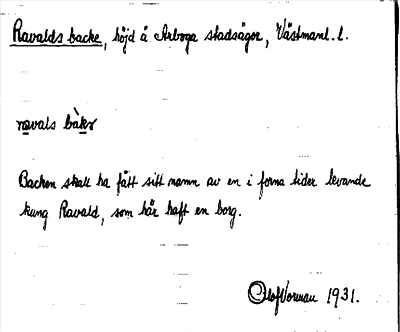 Ravalds backe, höjd å Arboga stadsägor, Västmanl. l.
ravals bàkɘ
Backen skall ha fått sitt namn av en i forna tider levande
kung Ravald, som här haft en borg.
Olof Vorman 1931.